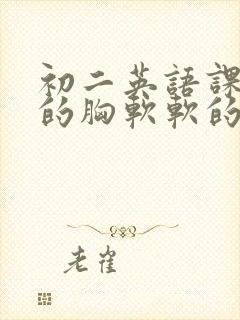 初二英語課
的胸軟軟的
老